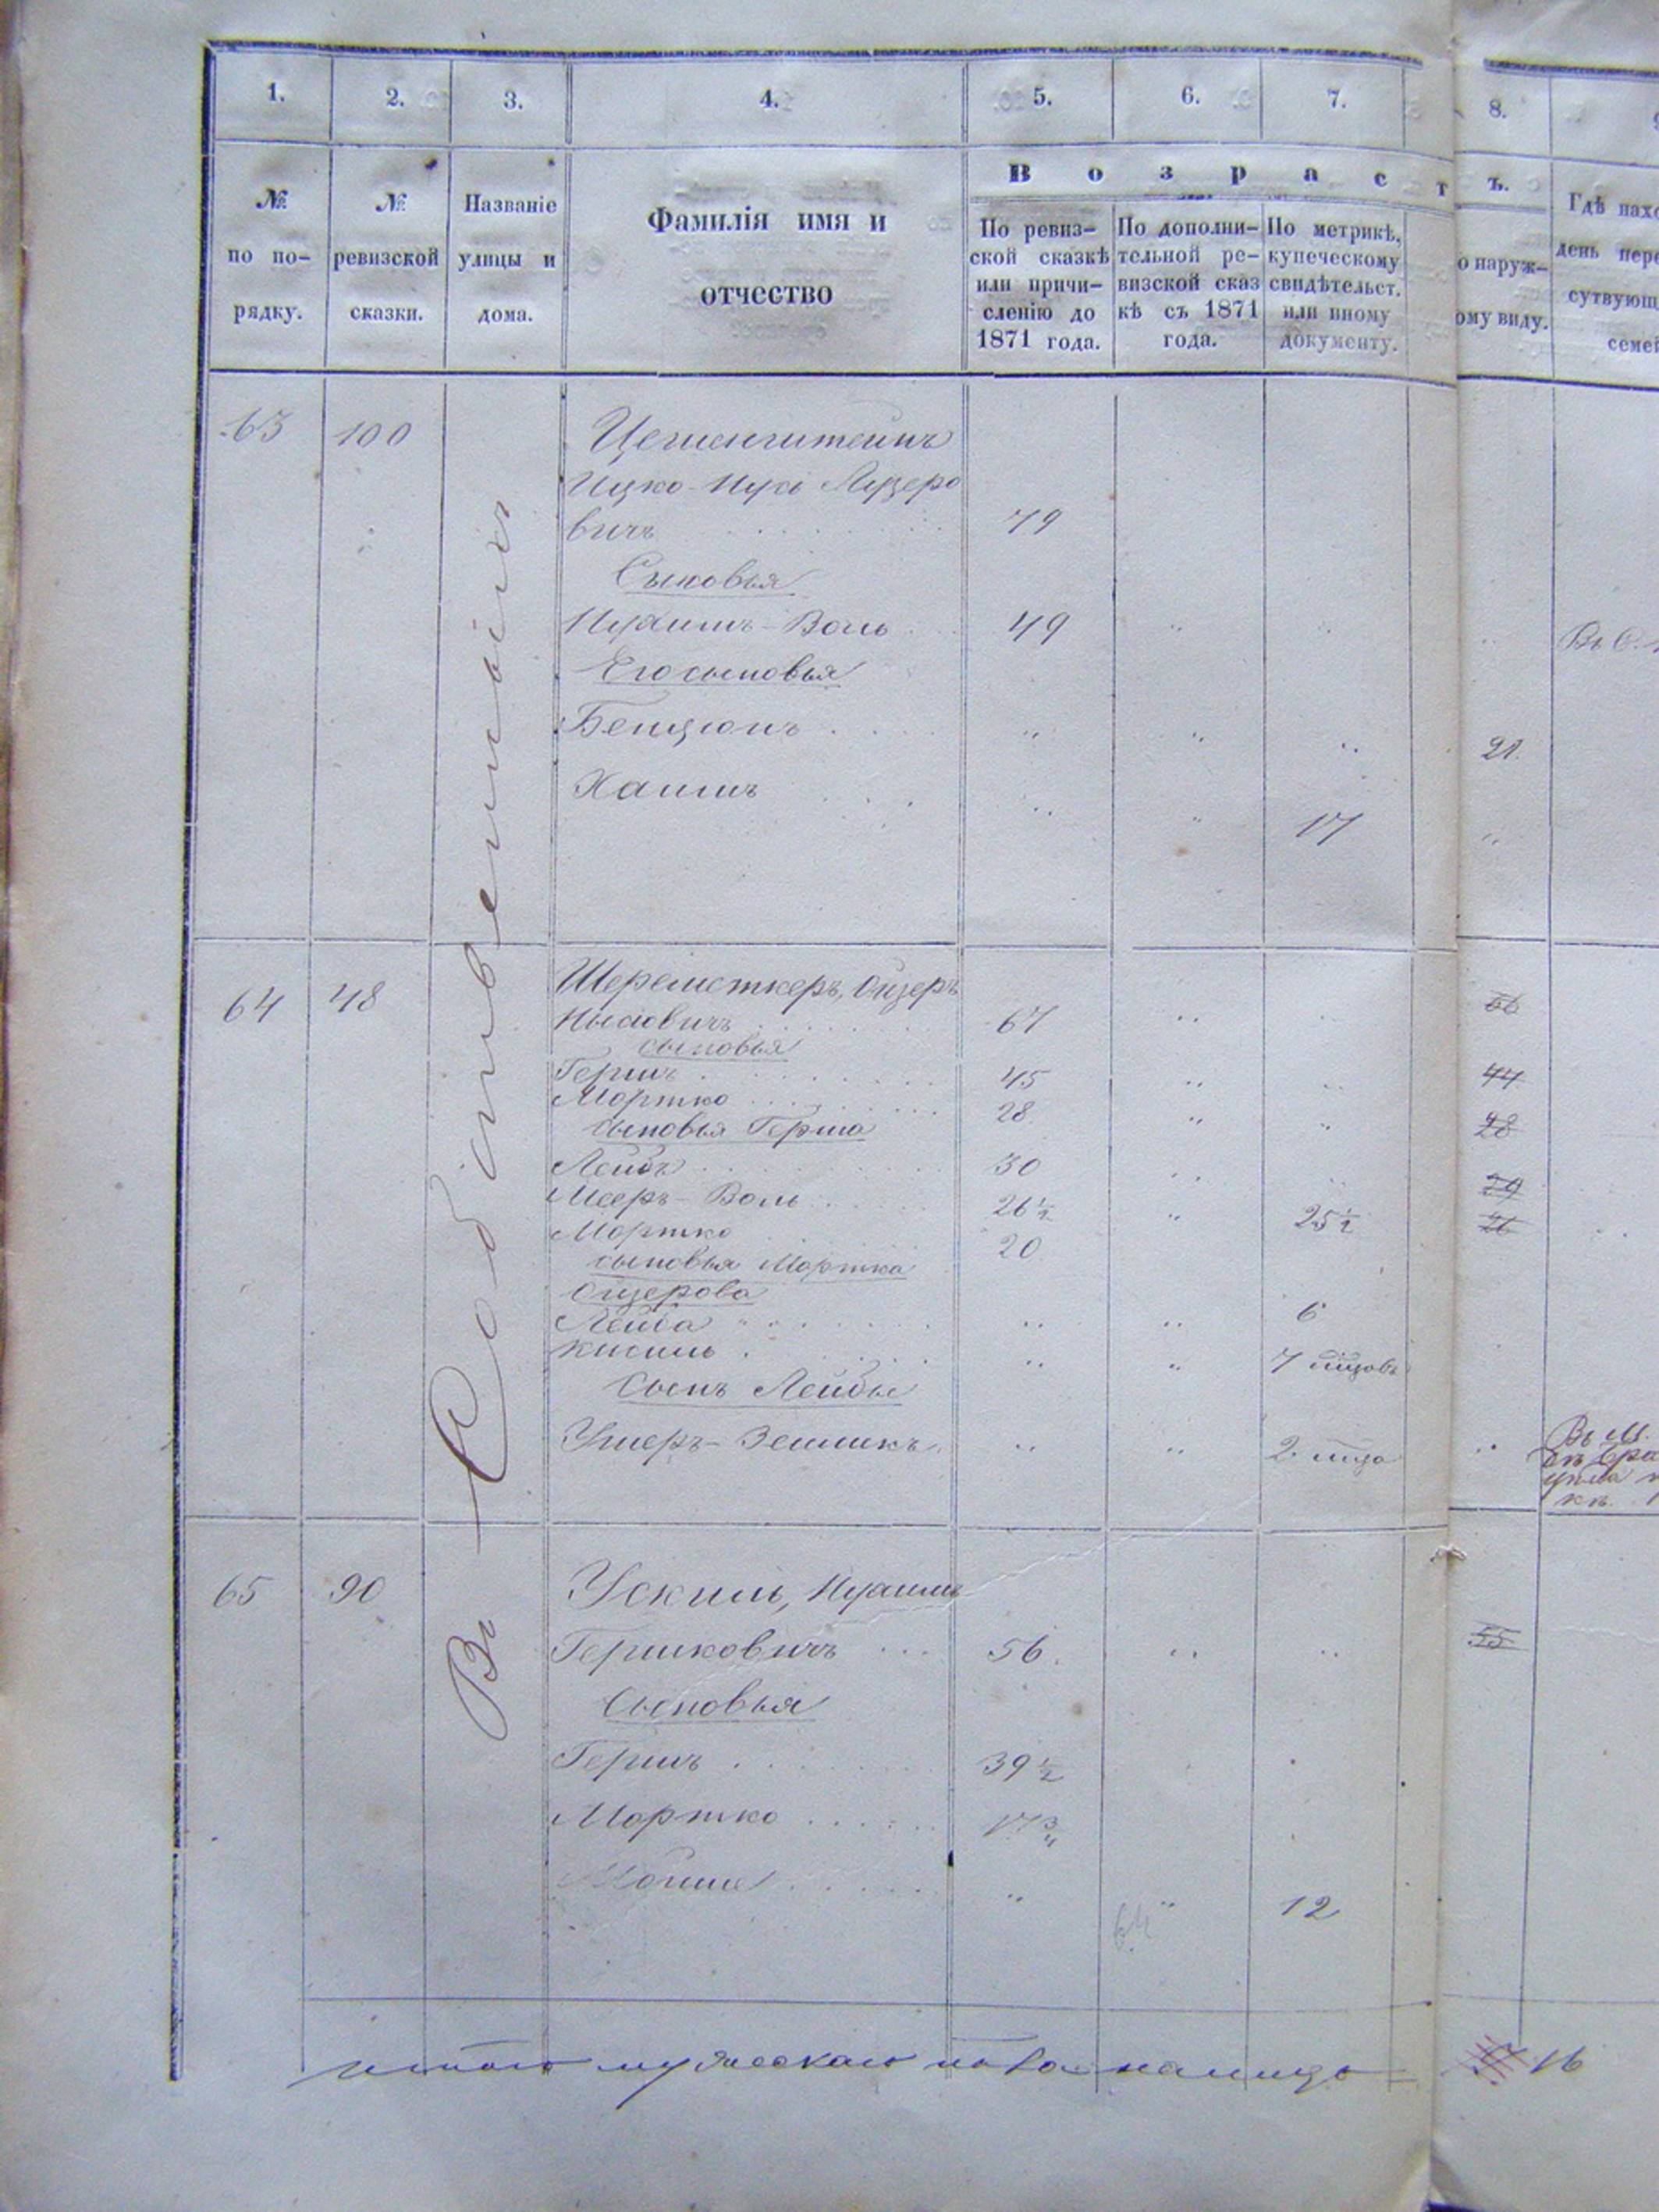 1. 2. 3. 4. 5. 6. 7. 8.
№ по по-рядку.
№ ревизской сказки.
Названіе улицы и дома.
Фамилія имя и отчество
Возрастъ.
По ревиз-
ской сказкѣ
или причи-
сленію до
1871 года.
По дополни-
тельной ре-
визской сказ
кѣ съ 1871
года.
По метрикѣ,
купеческому
свидѣтельст.
или иному
документу.
о наруж-
ому виду.
Гдѣ нахо
день пере
сутвующ
семей
Въ Собственныхъ
63 100 Цегленштейнъ
Ицко-Нусь Лизеро
вичъ 79
Сыновья
Нухимъ-Воль 49
Его сыновья
Бенціонъ 21
Хаимъ 17
64 48 Шереметкеръ, Ойзеръ
Мысіовичъ 67 66
сыновья
Гершъ 45 44
Мортко 28 28
сыновья Герша
Лейбъ 30 29
Мееръ-Воль 26½ 25½ 26
Мортко 20
сыновья Мортка
Ойзерова
Лейба 6
Кисиль 7 мѣсяцовъ
Сынъ Лейбы
Ушеръ-Зелликъ 2 мѣсца
Въ М.
65 90 Ускиль, Нухимъ
Гершковичъ 56. 55
Сыновья
Гершъ 39½
Мортко 17¾
Мойше 12
64
итого мужескаго пола налицо 16